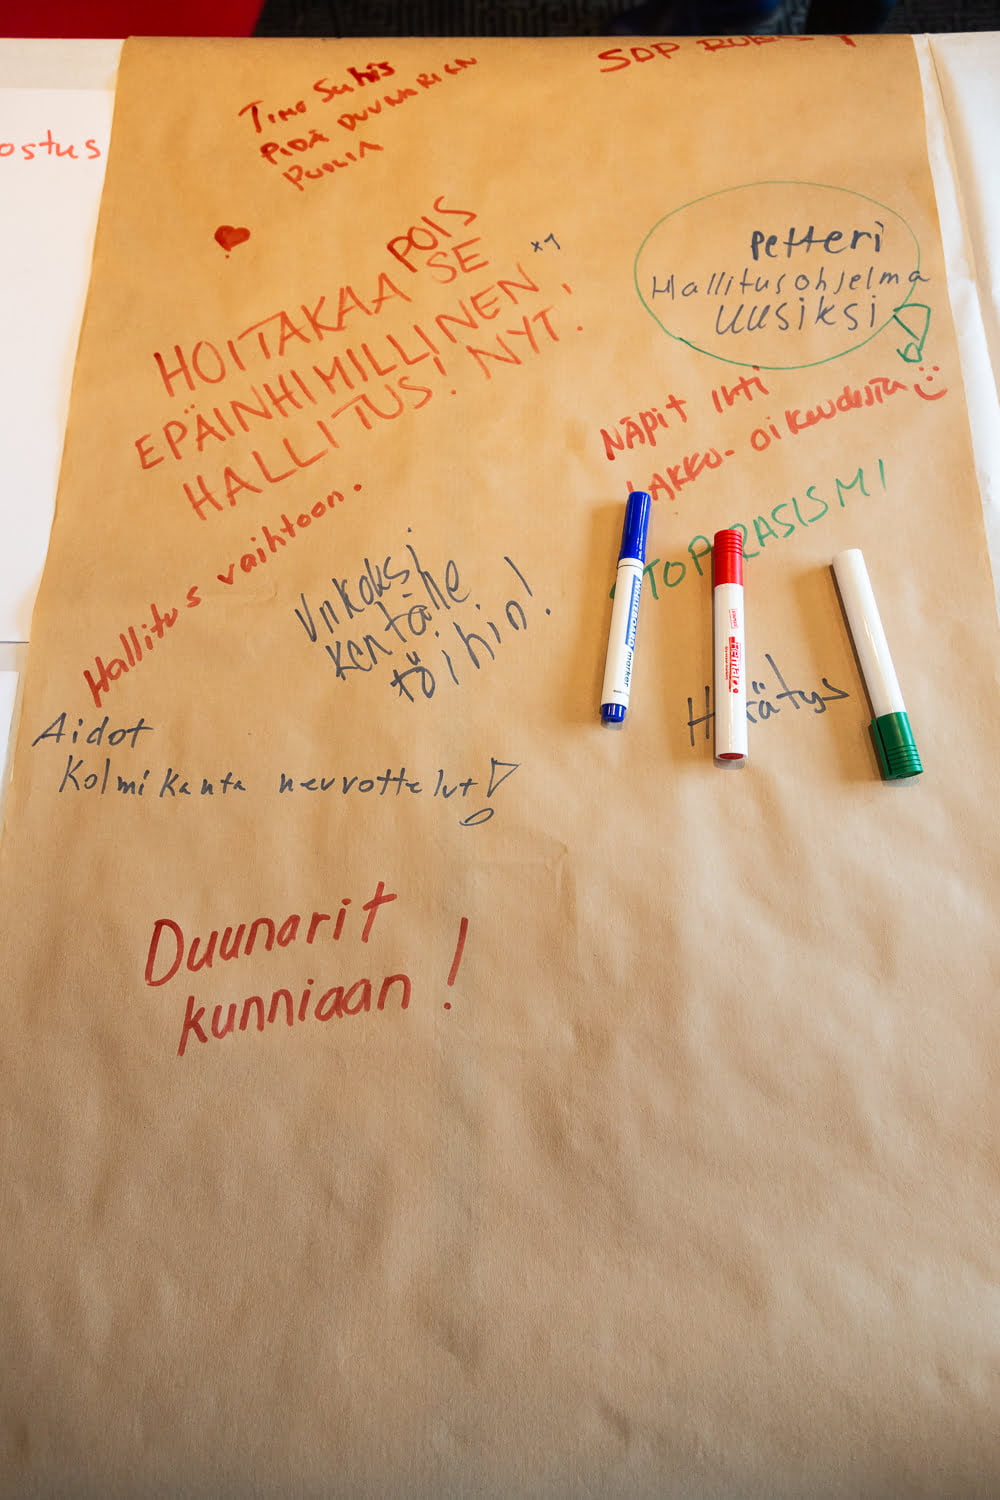 SDP
ostus
Timo Suhis
PIDÄ DUUNARIEN
PUOLIA
POIS
HOITAKAA SE
EPÄINHIMILLINEN
x1
HALLITUS! NYT.
Petteri
Hallitusohjelma
UUSiksi
Näpit irti
LAKKO-oikeudesta
STOP RASISMI
Hallitus vaihtoon.
Viikoksi
kentälle
töihin!
WHITEBOARD marker
Herätys
Aidot
Kolmikanta neuvottelut!
Duunarit
kunniaan!